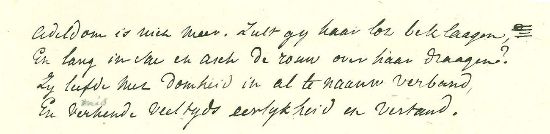 Adeldom is niet meer. Zult gy haar los beklaagen,
En lang in sac en asch de rouw over haar draagen?
Zy leefde met Domheid in al te naauw verband,
En verkende veeltyds eerlykheid en verstand.